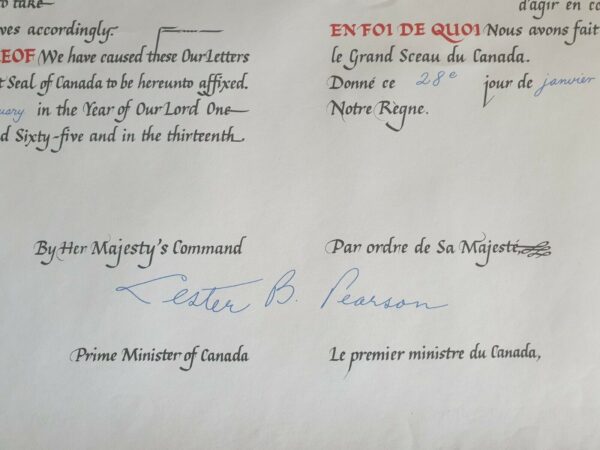 to take
ves accordingly.
EOF We have caused these Our Letters
t Seal of Canada to be hereunto affixed.
uary in the Year of Our Lord One
d Sixty-five and in the thirteenth
d'agir en co
EN FOI DE QUOI Nous avons fait
le Grand Sceau du Canada.
Donné ce 28e jour de janvier
Notre Règne.
By Her Majesty's Command
Par ordre de Sa Majesté,
Lester B. Pearson
Prime Minister of Canada
Le premier ministre du Canada,